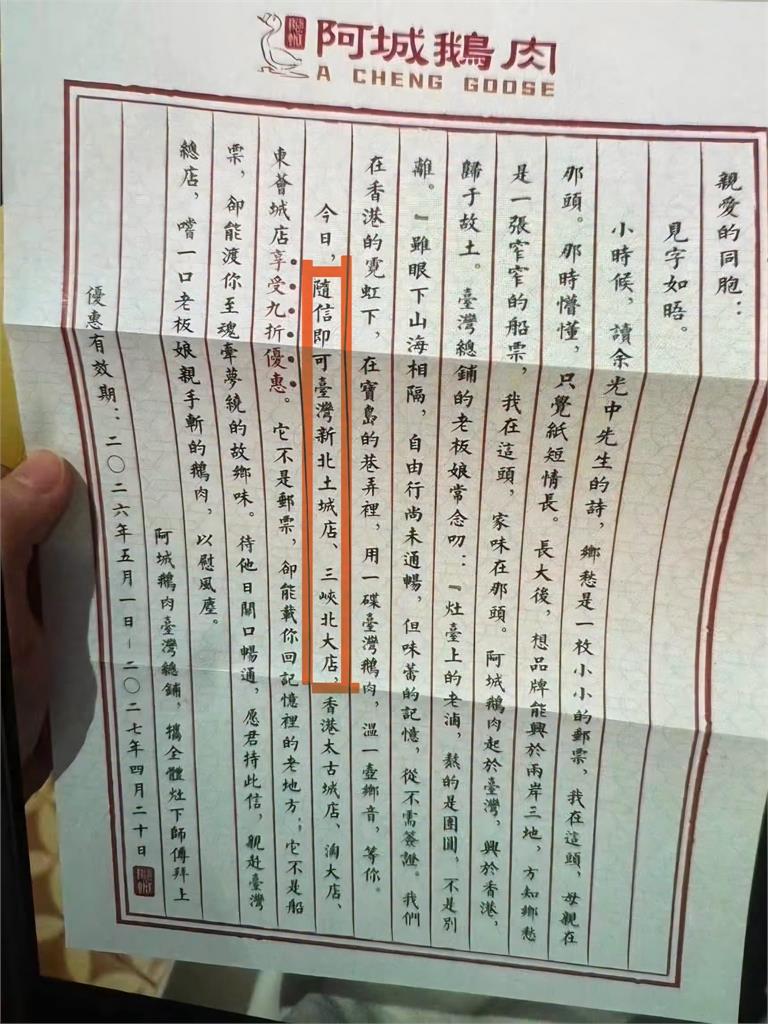 阿城鵝肉
A CHENG GOOSE
親愛的同胞：
見字如晤。
小時候，讀余光中先生的詩，鄉愁是一枚小小的郵票，我在這頭，母親在
那頭。那時懵懂，只覺紙短情長。長大後，想品牌能興於兩岸三地，方知鄉愁
是一張窄窄的船票，我在這頭，家味在那頭。阿城鵝肉起於臺灣，興於香港，
歸于故土。臺灣總鋪的老板娘常念叨：『灶臺上的老滷，熬的是團圓，不是別
離。『雖眼下山海相隔，自由行尚未通暢，但味蕾的記憶，從不需簽證。我們
在香港的霓虹下，在寶島的巷弄裡，用一碟臺灣鵝肉，溫一壺鄉音，等你。
今日，隨信即可臺灣新北土城店、三峽北大店，香港太古城店、淘大店、
東薈城店享受九折優惠。它不是郵票，卻能載你回記憶裡的老地方；它不是船
票，卻能渡你至魂牽夢繞的故鄉味。待他日關口暢通，愿君持此信，親赴臺灣
總店，嚐一口老板娘親手斬的鵝肉，以慰風塵。
阿城鵝肉臺灣總鋪，攜全體灶下師傅拜上
優惠有效期：二〇二六年五月一日-二〇二七年四月二十日